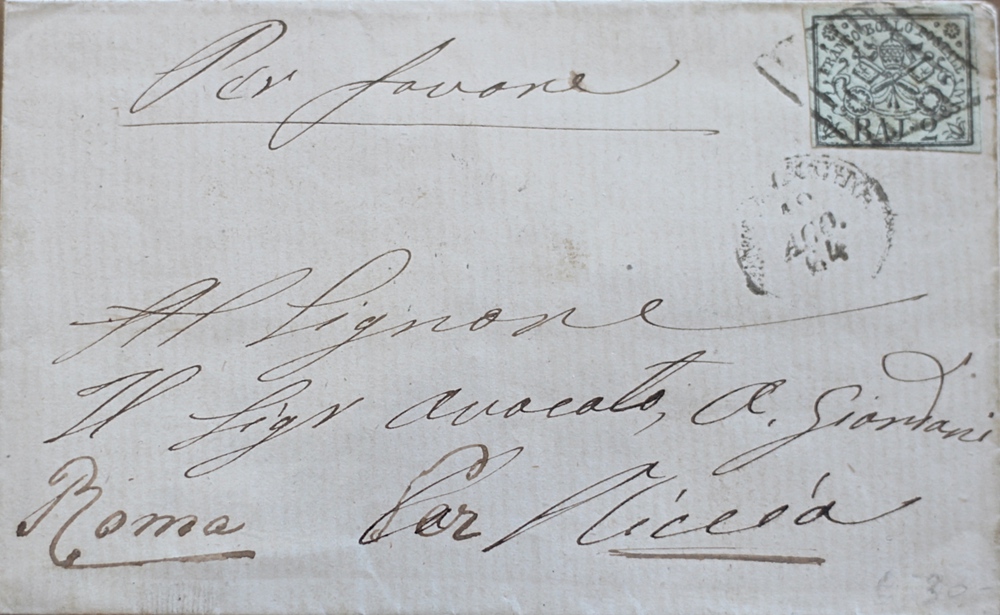 Per favore
FRANCO BOLLO POSTALE
BAI. 2
AGO.
64
Al Signore
Il Sigr avocato, A. Giordani
Roma Per